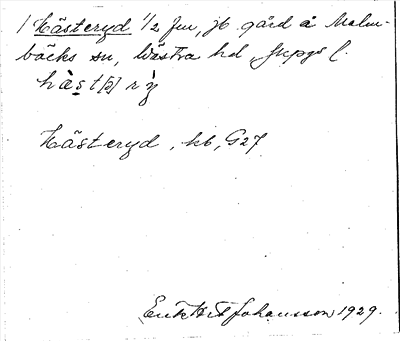 1 Hästeryd 1/2 fm, jb gård å Malm-
bäcks sn, Västra hd, Jkpgs l.
hàs̱t[ə] rỳ
Hästeryd, kb, G27
Enl. Johansson 1929.